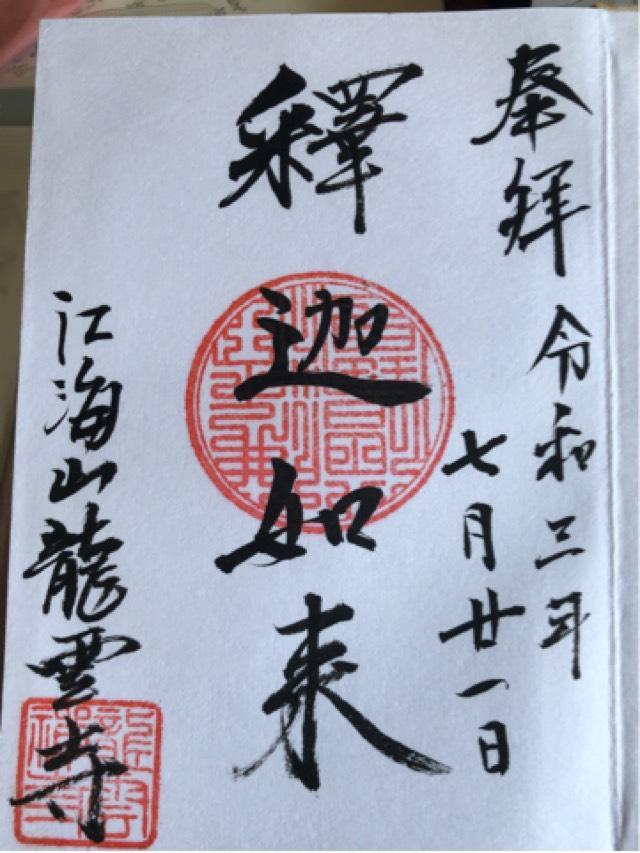 奉拜 令和三年
七月廿一日
釋迦如来
江海山龍雲寺